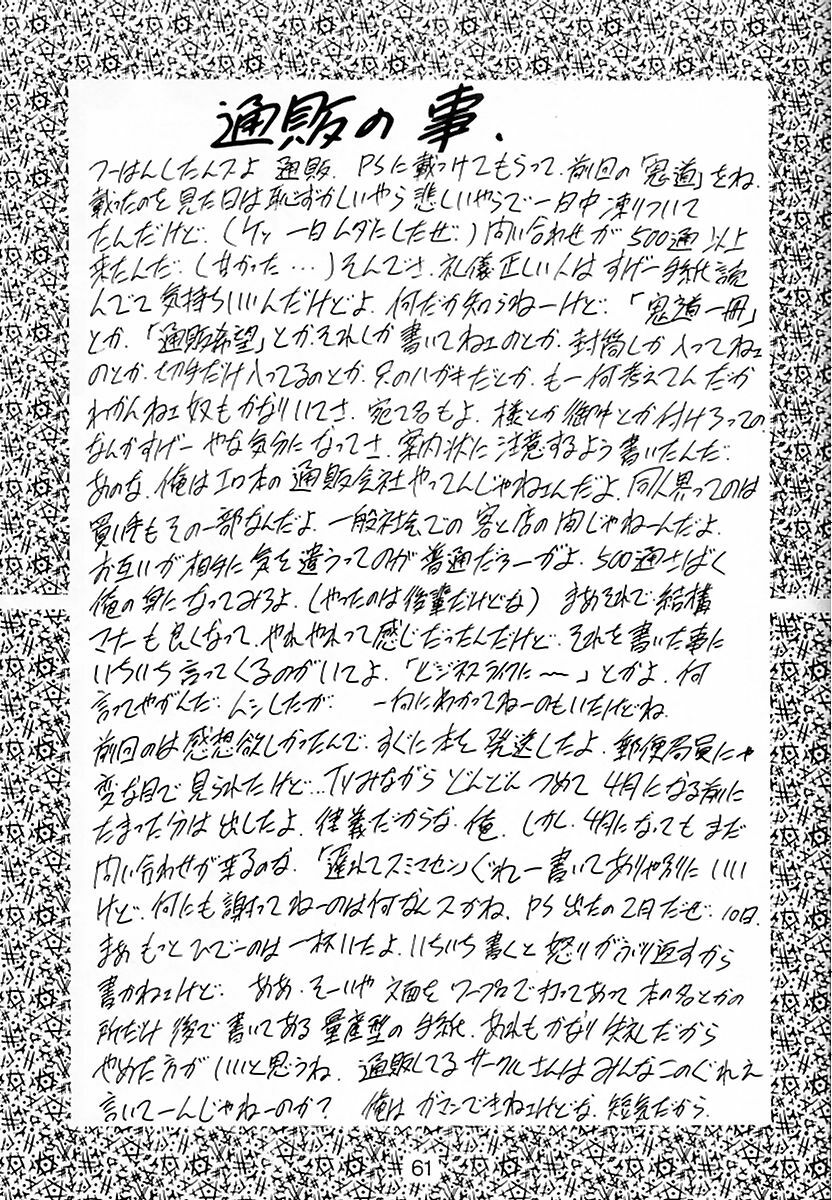 通販の事.
つーはんしたんスよ 通販. PSに載っけてもらって. 前回の「鬼道」をね.
載ったのを見た日は恥ずかしいやら悲しいやらで一日中凍りついて
たんだけど. (ケッ 一日ムダにしたぜ.) 問い合わせが500通以上
来たんだ. (甘かった…) そんでさ. 礼儀正しい人はすげー手紙読
んでて気持ちいいんだけどよ. 何だか知らねーけど. 「鬼道一冊」
とか. 「通販希望」とかそれしか書いてねェのとか. 封筒しか入ってねェ
のとか. 切手だけ入ってるのとか. 只のハガキだとか. もー何考えてんだか
わかんねェ奴もかなりいてさ. 宛て名もよ. 様とか御中とか付けろっての.
なんかすげー やな気分になってさ. 案内状に注意するよう書いたんだ.
あのな. 俺はエロ本の通販会社やってんじゃねェんだよ. 同人界ってのは
買い手もその一部なんだよ. 一般社会での客と店の間じゃねーんだよ.
お互いが相手に気を遣うってのが普通だろーがよ. 500通さばく
俺の身になってみろよ. (やったのは後輩だけどな) まあそれで結構
マナーも良くなって. やれやれって感じだったんだけど. それを書いた事に
いちいち言ってくるのがいてよ. 「ビジネスライクに〜」とかよ. 何
言ってやがんだ. ムシしたが. 一向にわかってねーのもいたけどね.
前回のは感想欲しかったんで. すぐに本を発送したよ. 郵便局員にゃ
変な目で見られたけど… TVみながら どんどんつめて 4月になる前に
たまった分は出したよ. 律義だからな. 俺. しかし. 4月になってもまだ
問い合わせが来るのな. 「遅れてスミマセン」ぐれー書いてありゃ別にいい
けど. 何にも謝ってねーのは何なんスかね. PS出たの2月だぜ. 10日.
まあ もっとひでーのは一杯いたよ. いちいち書くと怒りがぶり返すから
書かねェけど. ああ. そーいや 文面をワープロで打ってあって 本の名とかの
所だけ後で書いてある量産型の手紙. あれもかなり失礼だから
やめた方がいいと思うね. 通販してるサークルさんはみんなこのぐれェ
言いてーんじゃねーのか? 俺はガマンできねェけどな. 短気だから.
61